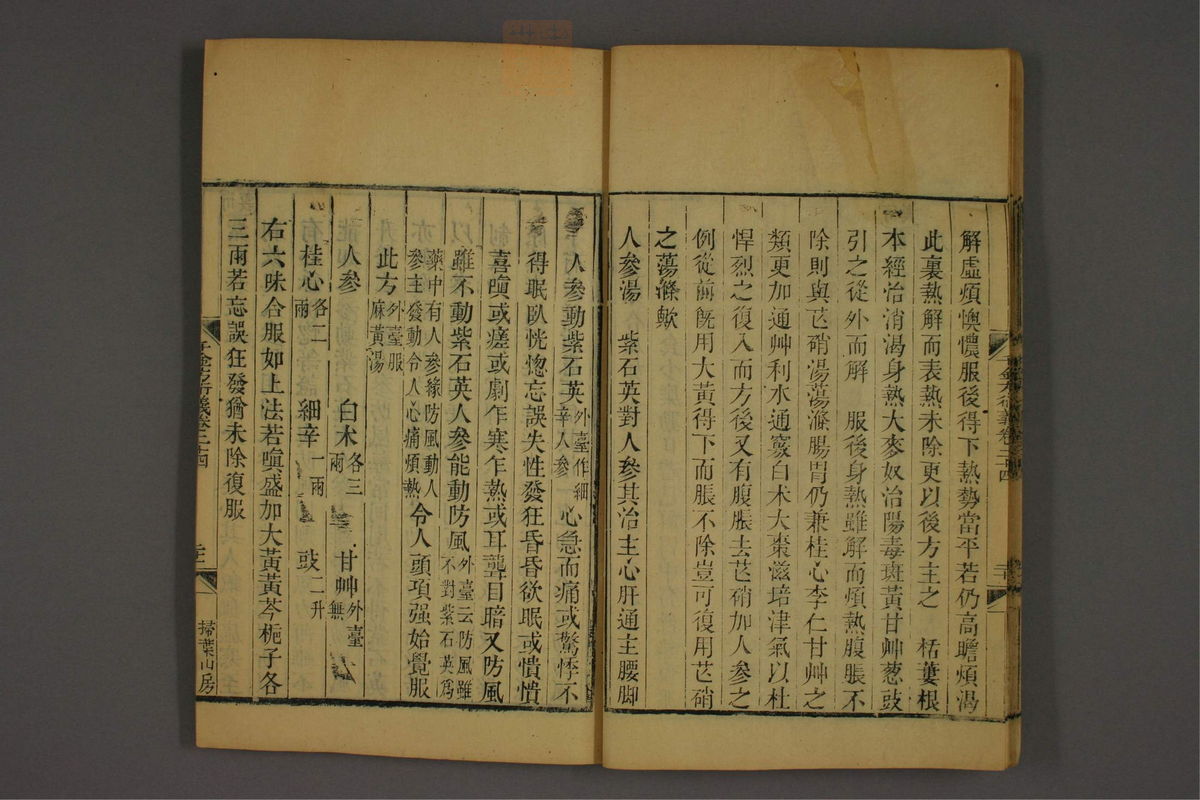 解虛煩懊憹服後得下熱勢當平若仍高瞻煩渴
此裏熱解而表熱未除更以後方主之　栝蔞根
本經治消渴身熱大麥奴治陽毒斑黃甘艸葱豉
引之從外而解　服後身熱雖解而煩熱腹脹不
除則與芒硝湯蕩滌腸胃仍兼桂心李仁甘艸之
類更加通艸利水通竅白术大棗滋培津氣以杜
悍烈之復入而方後又有腹脹去芒硝加人參之
例從前旣用大黃得下而脹不除豈可復用芒硝
之蕩滌歟
人參湯　紫石英對人參其治主心肝通主腰脚
人參動紫石英外臺作細辛人參心急而痛或驚悸不
得眠臥恍惚忘誤失性發狂昏昏欲眠或憒憒
喜嗔或瘥或劇乍寒乍熱或耳聾目暗又防風
雖不動紫石英人參能動防風外臺云防風雖不對紫石英爲
藥中有人參緣防風動人參主發動令人心痛煩熱令人頭項强始覺服
此方外臺服麻黃湯
人參　白术各三兩　甘艸外臺無
桂心各二兩　細辛一兩　豉二升
右六味合服如上法若嗔盛加大黃黃芩梔子各
三兩若忘誤狂發猶未除復服
千金方衍義卷二十四
掃葉山房